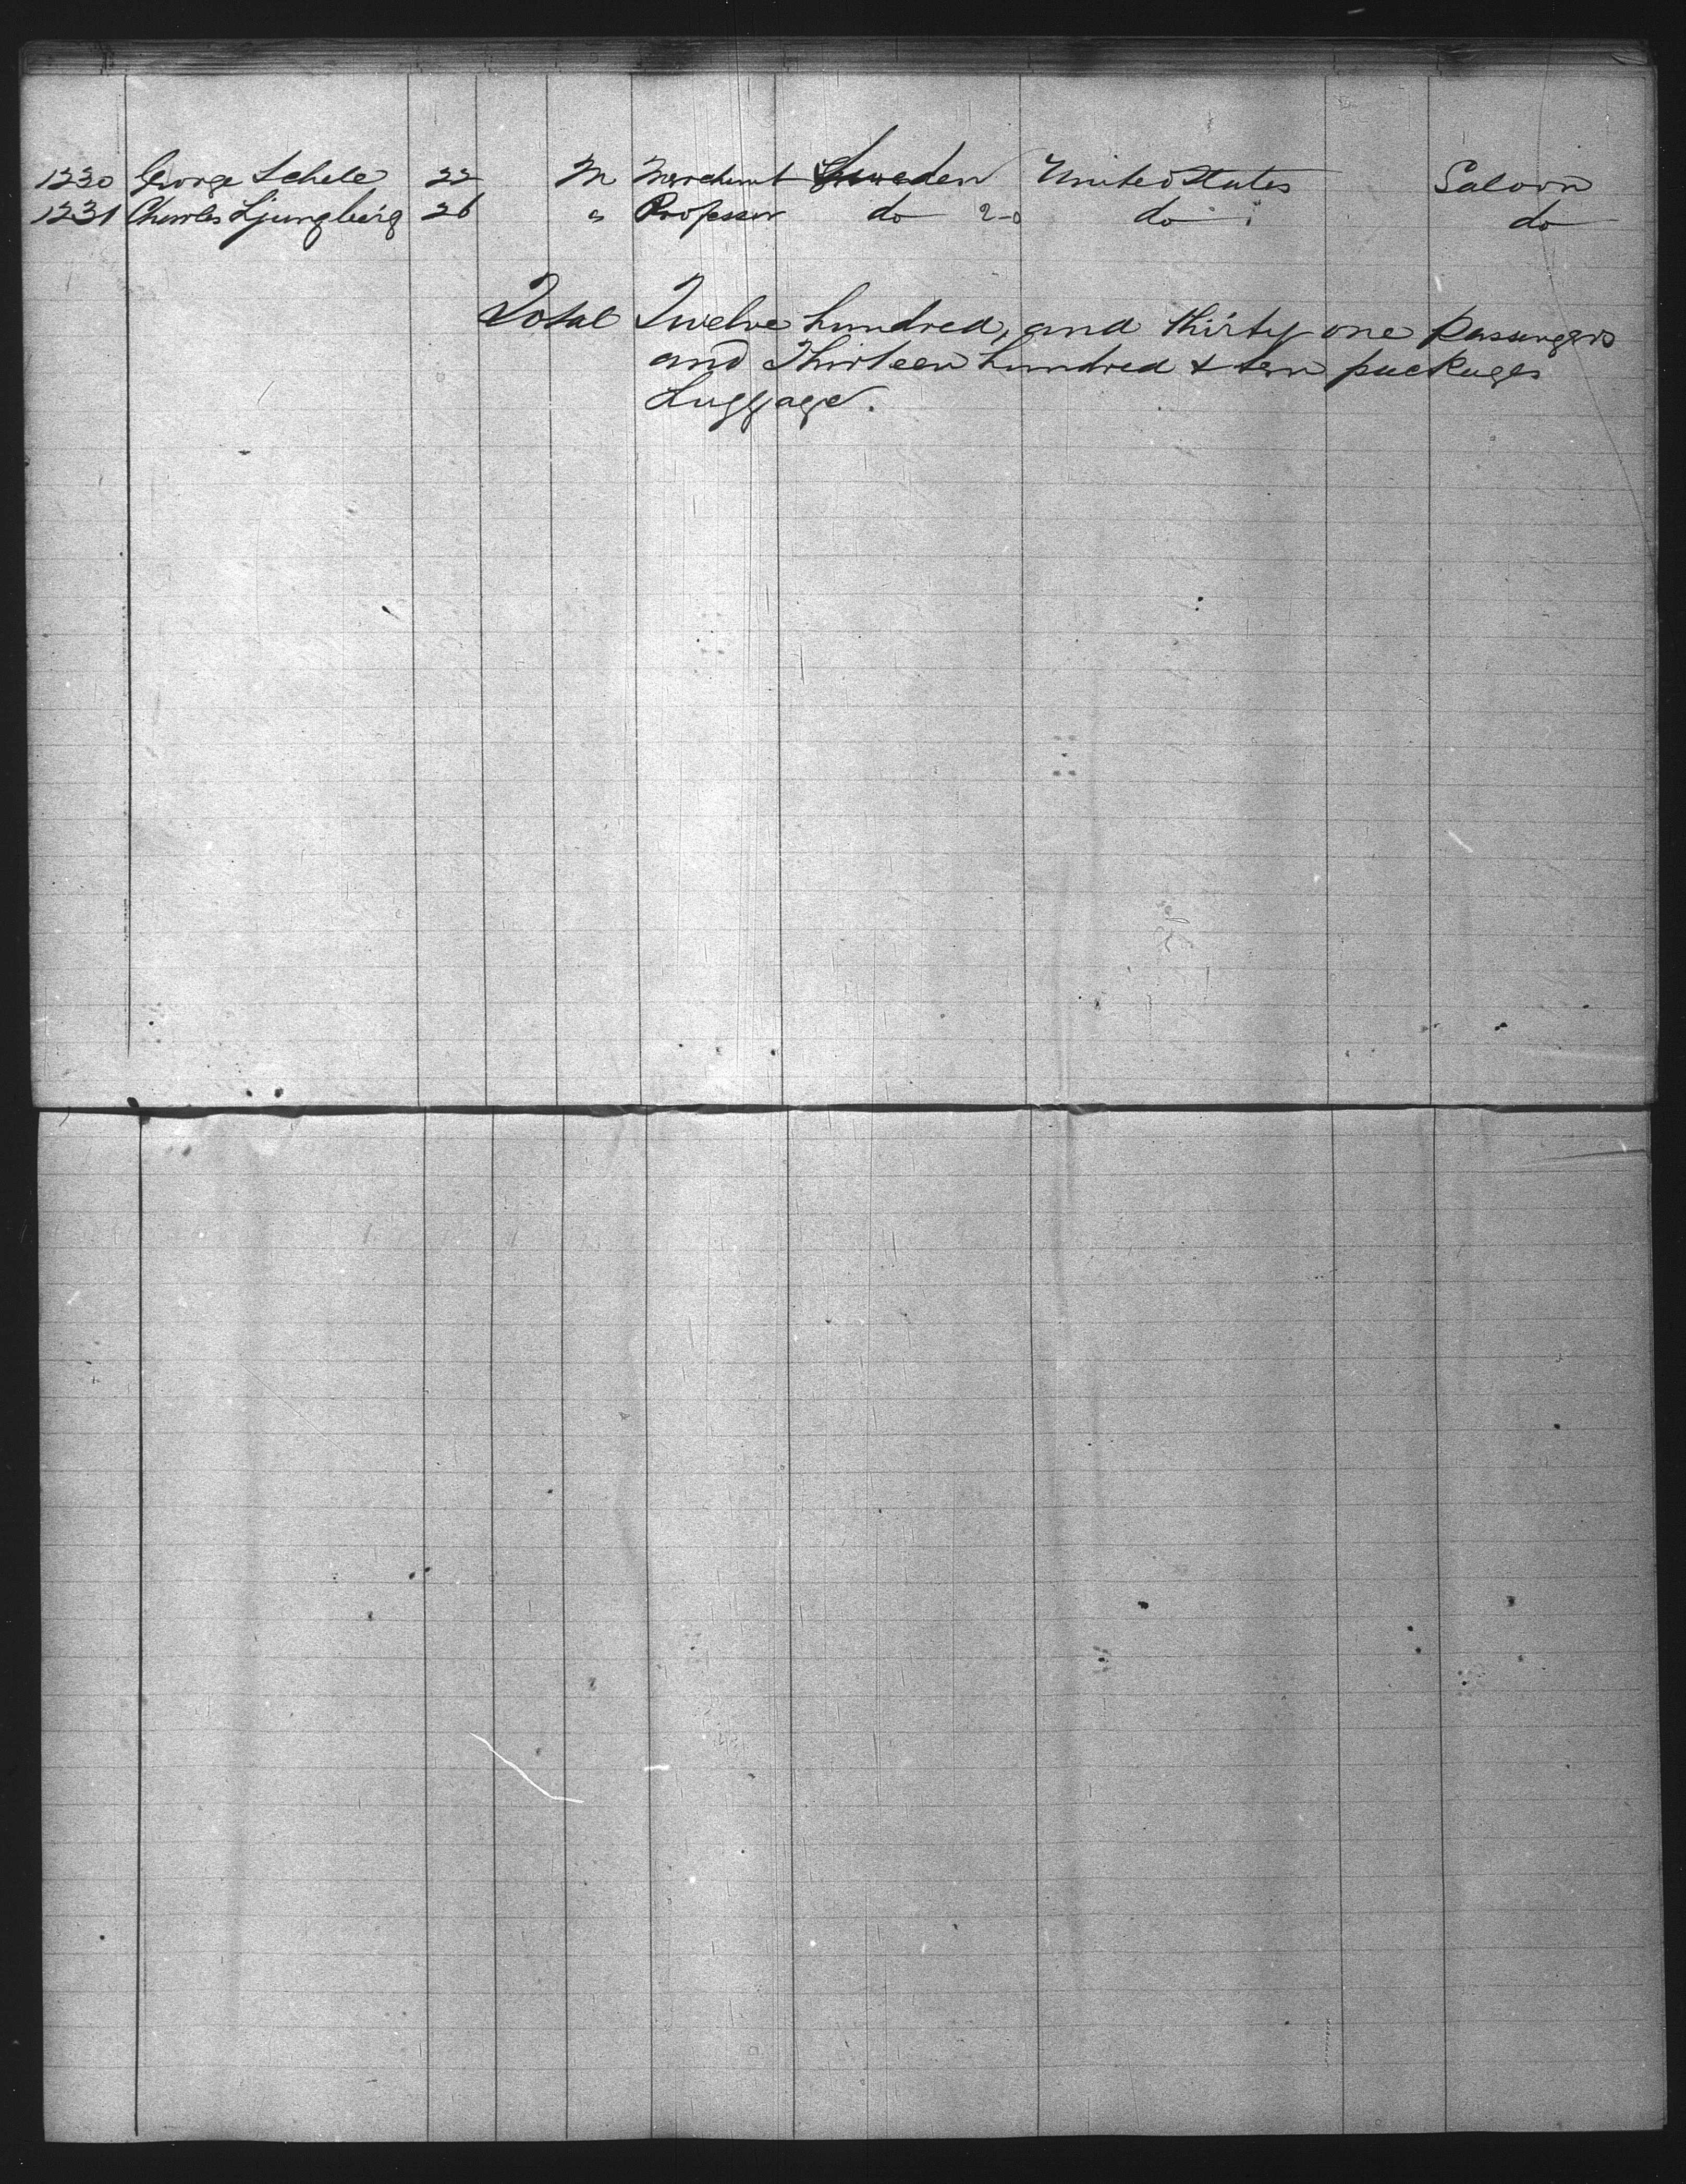 1230 George Schele 22 M Merchant Sweden United States Saloon
1231 Charles Ljungberg 26 " Professor do 2-0 do do
Total Twelve hundred, and thirty one passengers
and Thirteen hundred & ten packages
Luggage.